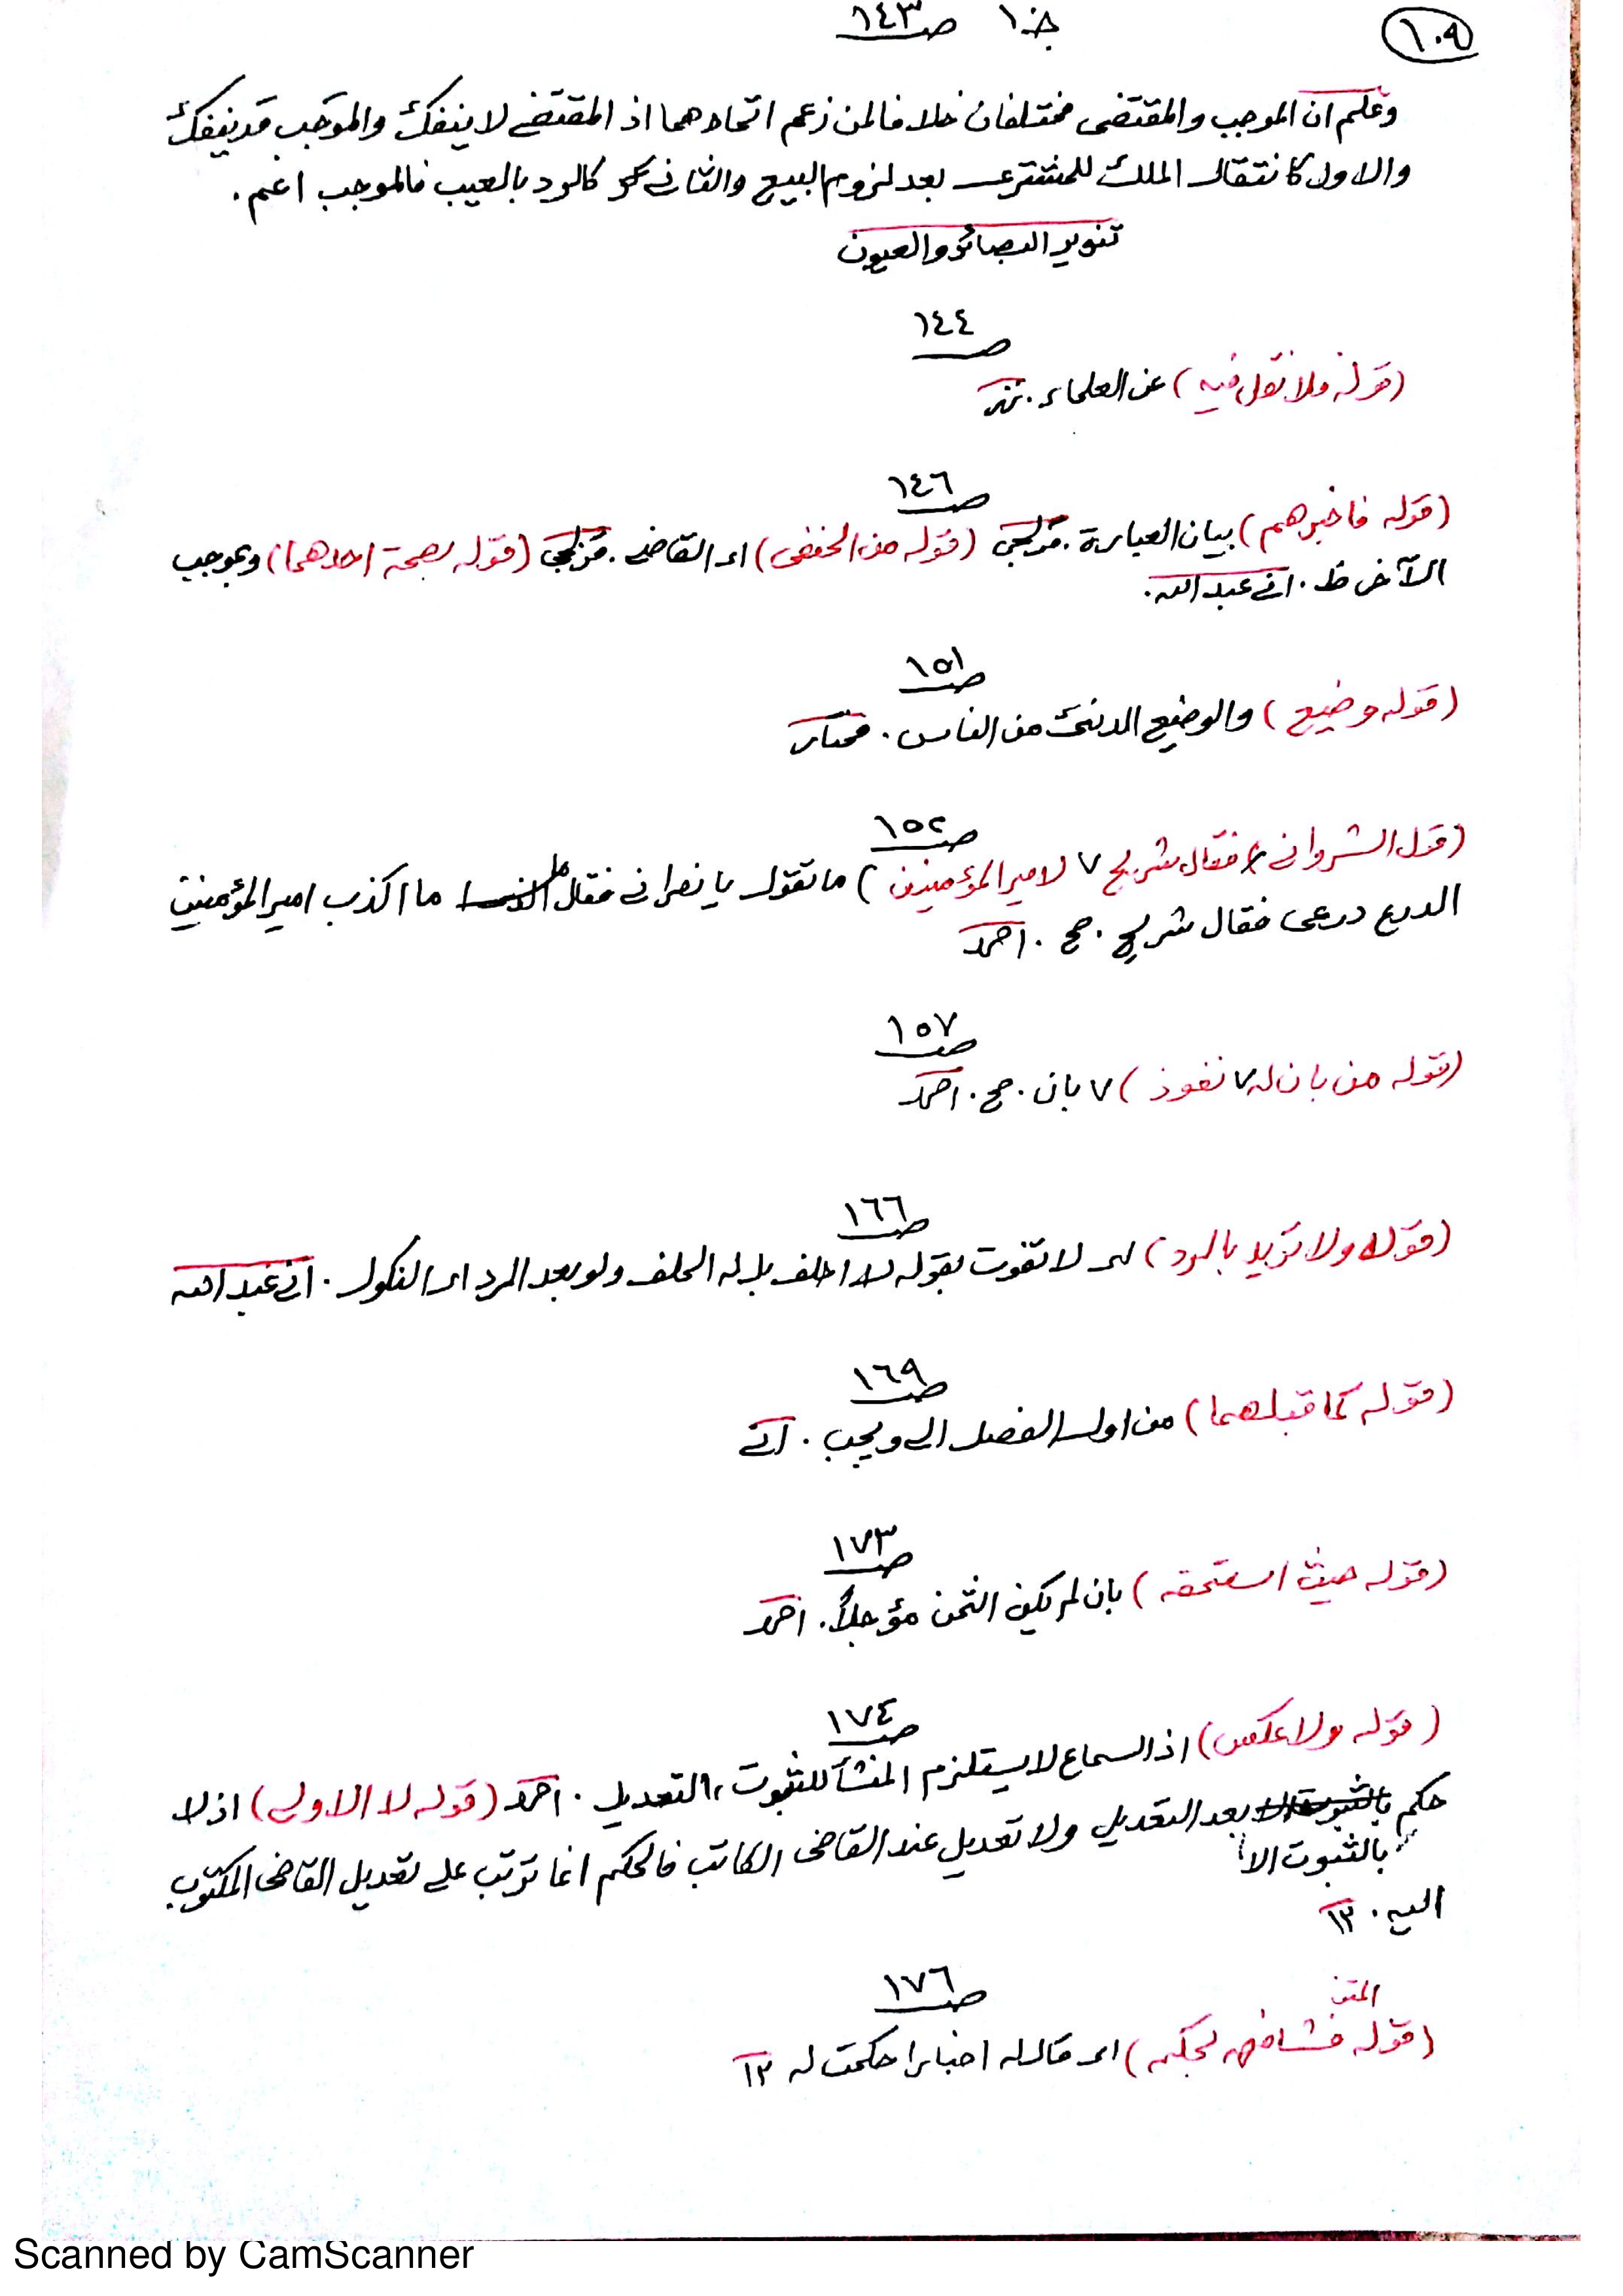 ١٠٩
جـ ١٠ صـ ١٤٣
وعلم ان الموجب والمقتضى مختلفان خلافا لمن زعم اتحادهما اذ المقتضى لا ينفك والموجب قد ينفك
والاول كانتقال الملك للمشترى بعد لزوم البيع والثانى كالرد بالعيب فالموجب اعم .
تنوير البصائر والعيون
صـ ١٤٤
(قوله ولا نقل فيه) عن العلماء .
صـ ١٤٦
(قوله فاخبرهم) بيان العبارة . قزلجى (قوله من الحنفى) اى القاضى . قزلجى (قوله بصحة احدهما) وبموجب
الآخر ظ . انى عبد الله .
صـ ١٥١
(قوله وضيع) والوضيع الدنئ من الناس . مختار
صـ ١٥٢
(قول الشروانى فقال شريح ٧ لامير المؤمنين) ما تقول يا نصرانى فقال ما اكذب امير المؤمنين
الدرع درعى فقال شريح . صح . احمد
صـ ١٥٧
(قوله من بان له ٧ نفوذ) ٧ بان . صح . احمد
صـ ١٦٦
(قوله ولا تزيد بالرد) اى لا تفوت بقوله لا احلف بل له الحلف ولو بعد الرد اى النكول . انى عبد الله
صـ ١٦٩
(قوله كما قبلهما) من اول الفصل الى ويجب . انى
صـ ١٧٣
(قوله حيث استحقه) بان لم يكن الثمن مؤجلاً . احمد
صـ ١٧٤
(قوله ولا عكس) اذ السماع لا يستلزم المنشأ للثبوت التعديل . احمد (قوله لا الاولى) اذ لا
حكم بعد التعديل ولا تعديل عند القاضى الكاتب فالحكم انما ترتب على تعديل القاضى المكتوب
بالثبوت الا
اليه . ١٢
صـ ١٧٦
المتن
(قوله فشافهه بحكمه) اى قال له اخبارا حكمت له ١٢
Scanned by CamScanner